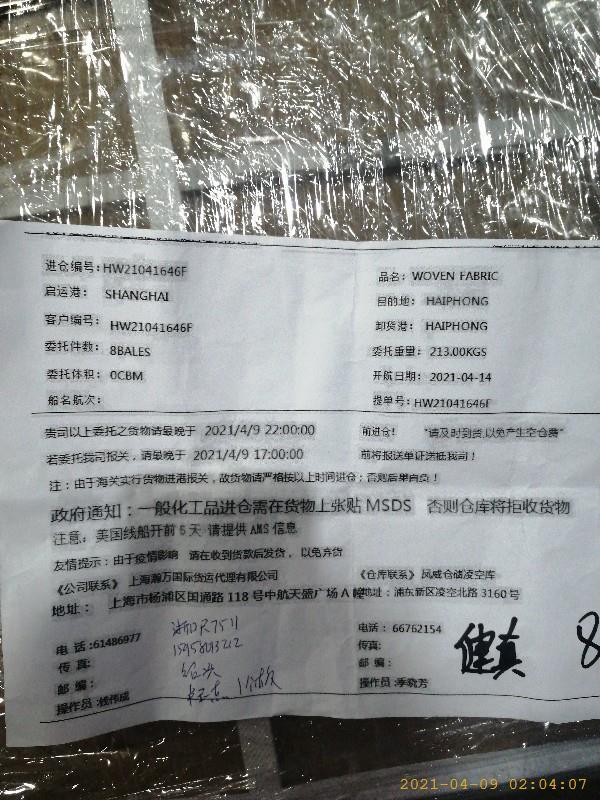 进仓编号:HW21041646F
品名: WOVEN FABRIC
启运港: SHANGHAI
目的地: HAIPHONG
客户编号: HW21041646F
卸货港: HAIPHONG
委托件数: 8BALES
委托重量: 213.00KGS
委托体积: 0CBM
开航日期: 2021-04-14
船名航次:
提单号:HW21041646F
贵司以上委托之货物请最晚于 2021/4/9 22:00:00 前进仓! "请及时到货,以免产生空仓费"
若委托我司报关,请最晚于 2021/4/9 17:00:00 前将报送单证送抵我司!
注:由于海关实行货物进港报关,故货物请严格按以上时间进仓;否则后果自负!
政府通知:一般化工品进仓需在货物上张贴 MSDS 否则仓库将拒收货物
注意:美国线船开前 5 天 请提供 AMS 信息
友情提示:由于疫情影响 请在收到货款后发货,以免弃货
《公司联系》上海瀚万国际货运代理有限公司
《仓库联系》凤威仓储凌空库
地址: 上海市杨浦区国通路 118 号中航天盛广场 A 幢
地址:浦东新区凌空北路 3160 号
电 话:61486977
电话: 66762154
传 真:
传真:
邮 编:
邮 编:
操作员:钱伟成
操作员:季晓芳
健真
8
2021-04-09 02:04:07